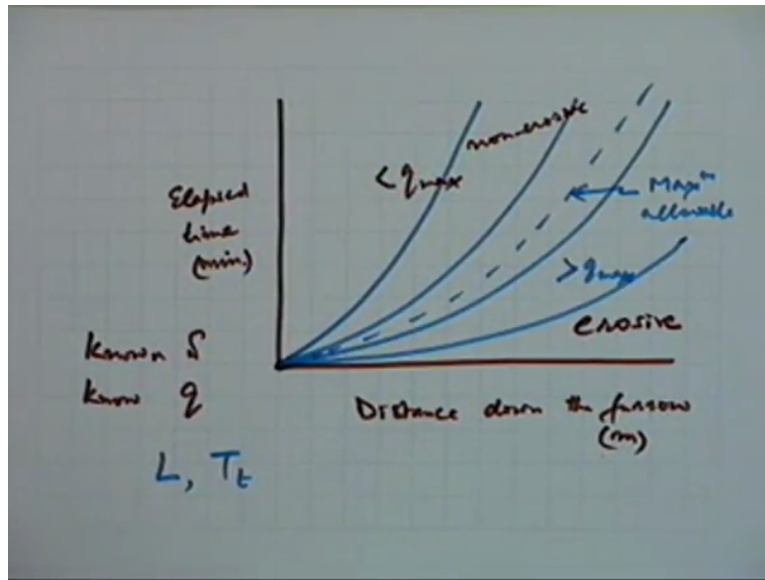 Elapsed
time
(min.)
< qmax
non-erosive
Maxm
allowable
> qmax
erosive
known S
know q
Distance down the furrow
(m)
L, Tt